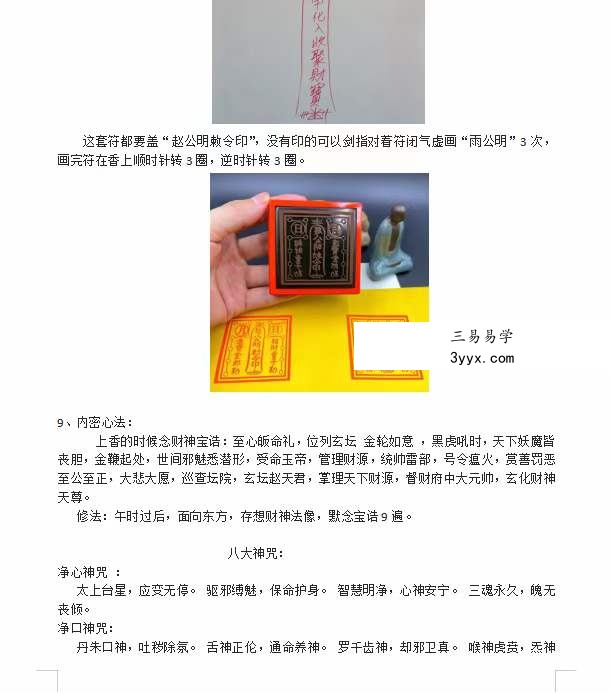 字化入狀聚財寳
这套符都要盖“赵公明敕令印”，没有印的可以剑指对着符闭气虚画“雨公明”3 次，
画完符在香上顺时针转 3 圈，逆时针转 3 圈。
三易易学
3yyx.com
9、内密心法：
上香的时候念财神宝诰：至心皈命礼，位列玄坛 金轮如意 ，黑虎吼时，天下妖魔皆
丧胆，金鞭起处，世间邪魅悉潜形，受命玉帝，管理财源，统帅雷部，号令瘟火，赏善罚恶
至公至正，大悲大愿，巡查坛院，玄坛赵天君，掌理天下财源，督财府中大元帅，玄化财神
天尊。
修法：午时过后，面向东方，存想财神法像，默念宝诰 9 遍。
八大神咒：
净心神咒 ：
太上台星，应变无停。 驱邪缚魅，保命护身。 智慧明净，心神安宁。 三魂永久，魄无
丧倾。
净口神咒：
丹朱口神，吐秽除氛。 舌神正伦，通命养神。 罗千齿神，却邪卫真。 喉神虎贲，炁神